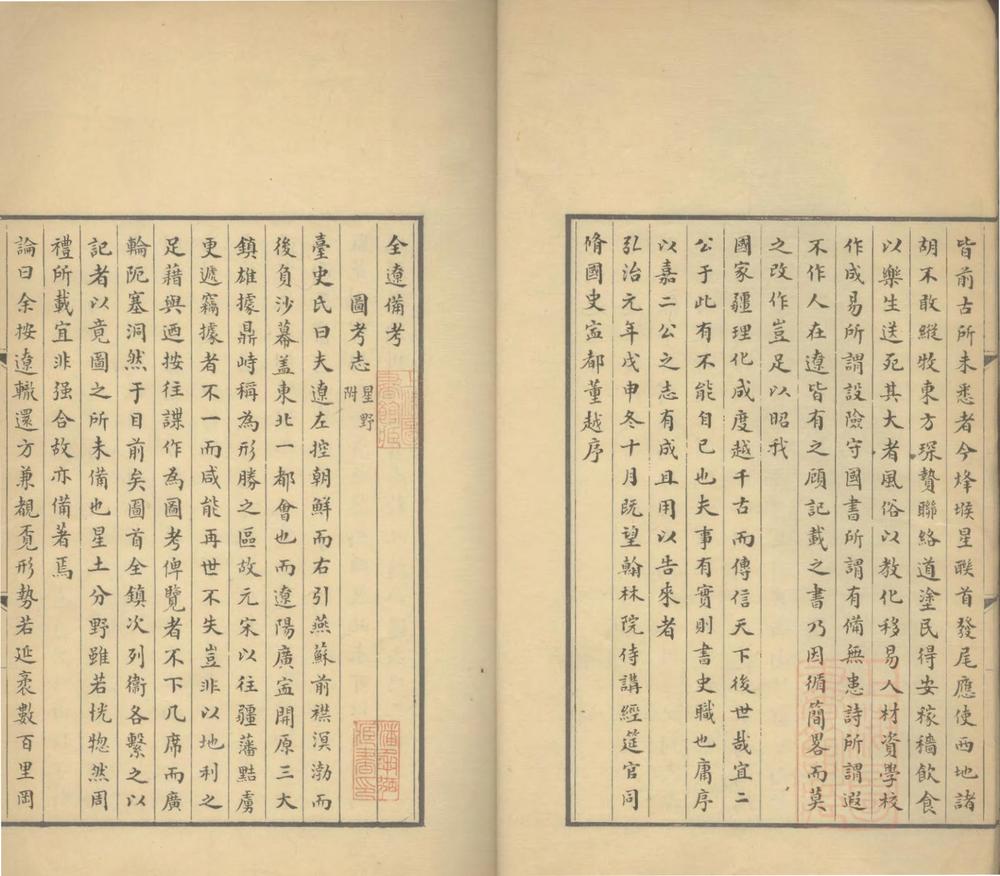 皆前古所未悉者今烽堠星聮首發尾應使西地諸
胡不敢縱牧東方琛贄聯絡道塗民得安稼穡飲食
以樂生送死其大者風俗以教化移易人材資學校
作成易所謂設險守國書所謂有備無患詩所謂遐
不作人在遼皆有之顧記載之書乃因循簡畧而莫
之改作豈足以昭我
國家疆理化咸度越千古而傳信天下後世哉宜二
公于此有不能自已也夫事有實則書史職也庸序
以嘉二公之志有成且用以告來者
弘治元年戊申冬十月既望翰林院侍講經筵官同
脩國史寍都董越序
全遼備考
圖考志 星野附
臺史氏曰夫遼左控朝鮮而右引燕蘇前襟溟渤而
後負沙幕盖東北一都會也而遼陽廣寍開原三大
鎮雄據鼎峙稱為形勝之區故元宋以往疆藩黠虜
更遞竊據者不一而咸能再世不失豈非以地利之
足藉與迺按往諜作為圖考俾覽者不下几席而廣
輪阨塞洞然于目前矣圖首全鎮次列衛各繫之以
記者以竟圖之所未備也星土分野雖若恍惚然周
禮所載宜非强合故亦備著焉
論曰余按遼轍還方兼覩覔形勢若延袤數百里岡